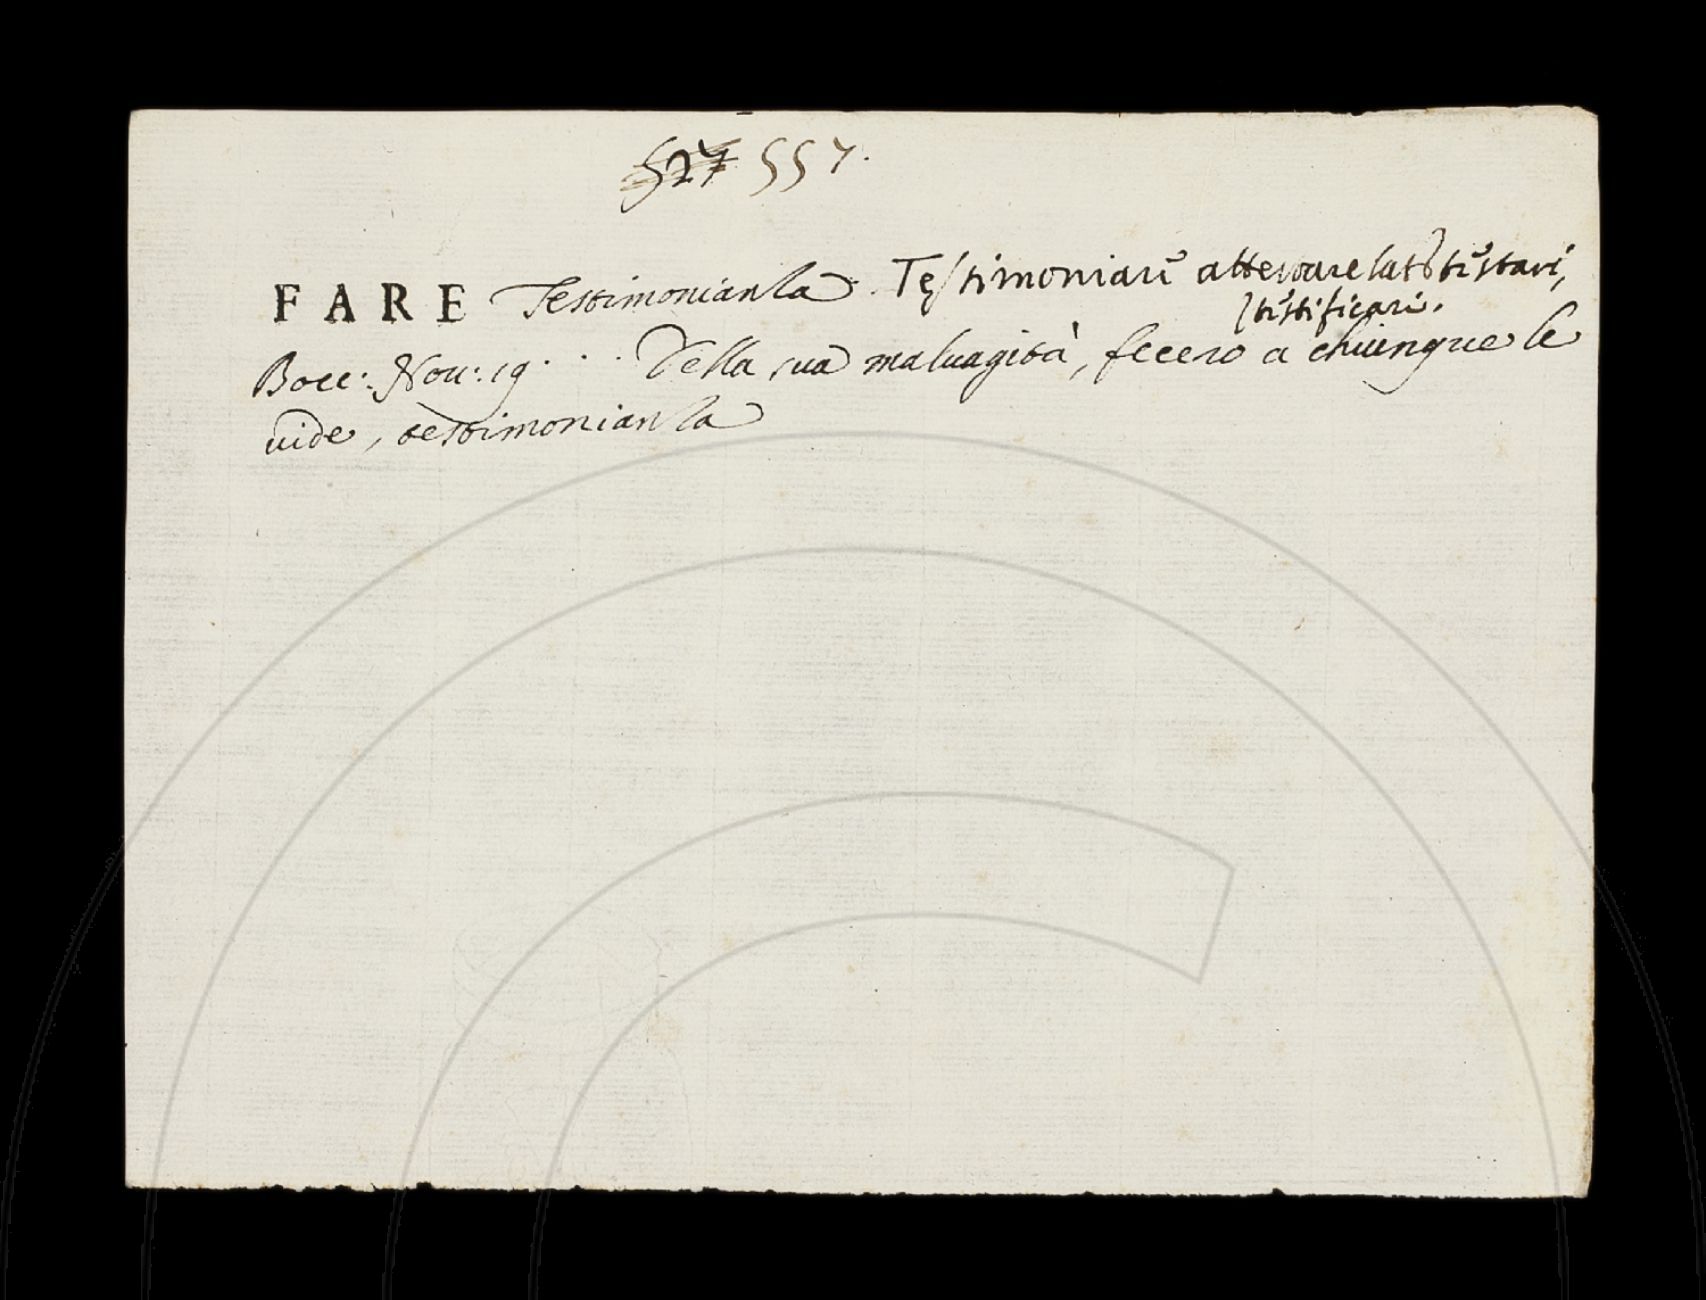 527 557.
FARE Testimonianza. Testimoniare attestare lat. testari,
testificari.
Bocc: Nou: 19. . . Della sua maluagità, fecero a chiunque le
uide, testimonianza